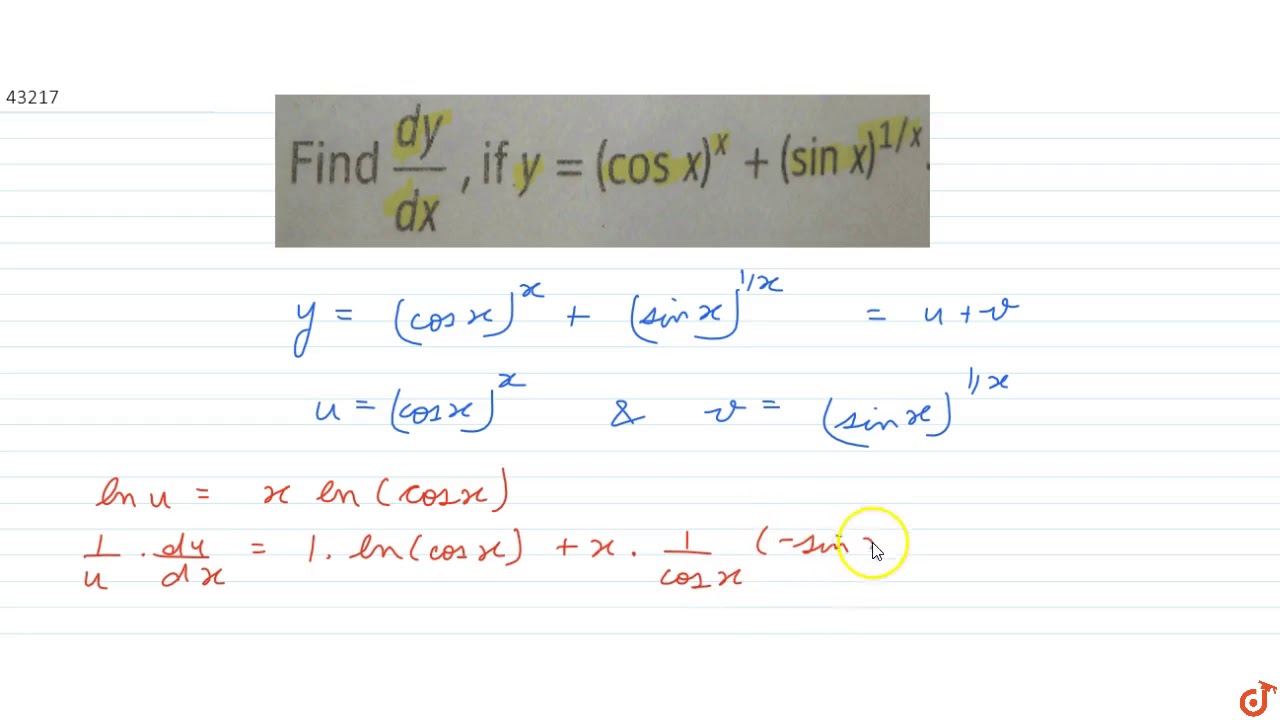 43217
Find dy/dx , if y = (cos x)^x + (sin x)^1/x.
y = (cos x)^x + (sin x)^1/x = u + v
u = (cos x)^x & v = (sin x)^1/x
ln u = x ln (cos x)
1/u . du/dx = 1. ln (cos x) + x . 1/cos x (-sin